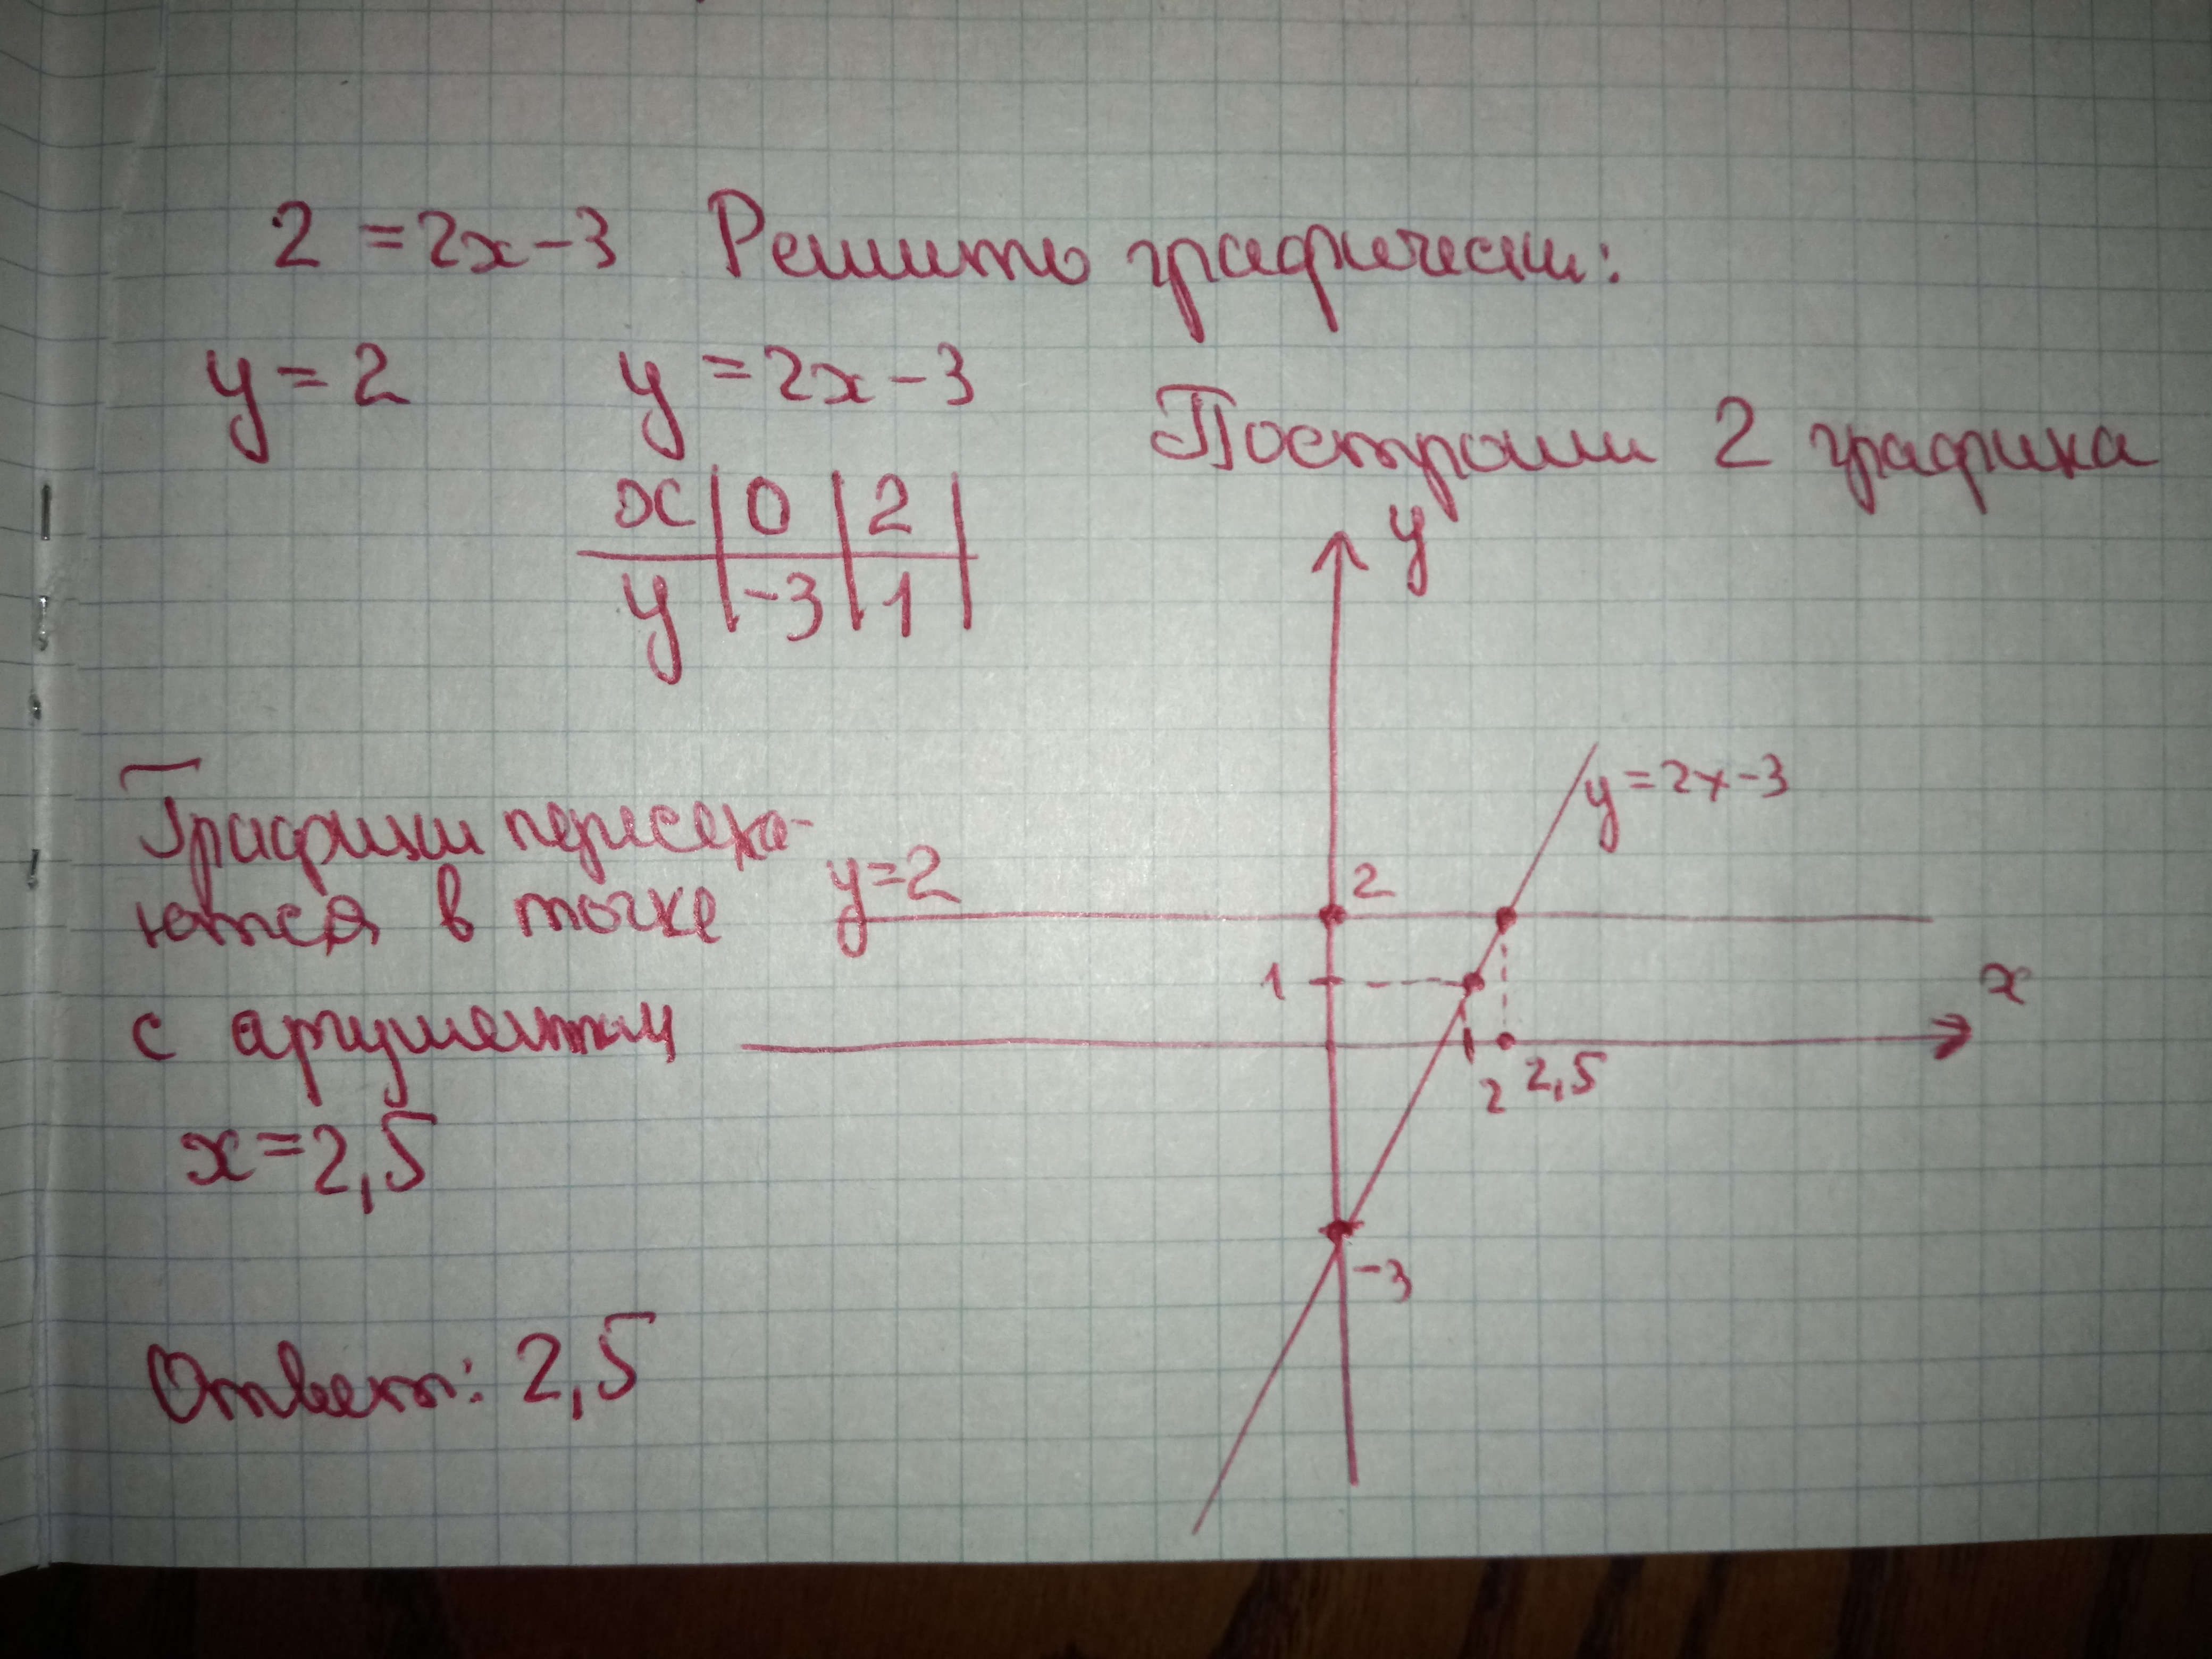 2 = 2x-3 Решить графически:
y = 2 y = 2x-3
Построим 2 графика
x | 0 | 2 |
y | -3 | 1 |
y
y=2x-3
Графики пересека-
ются в точке
y=2
2
1
x
с аргументом
2 2,5
x=2,5
-3
Ответ: 2,5